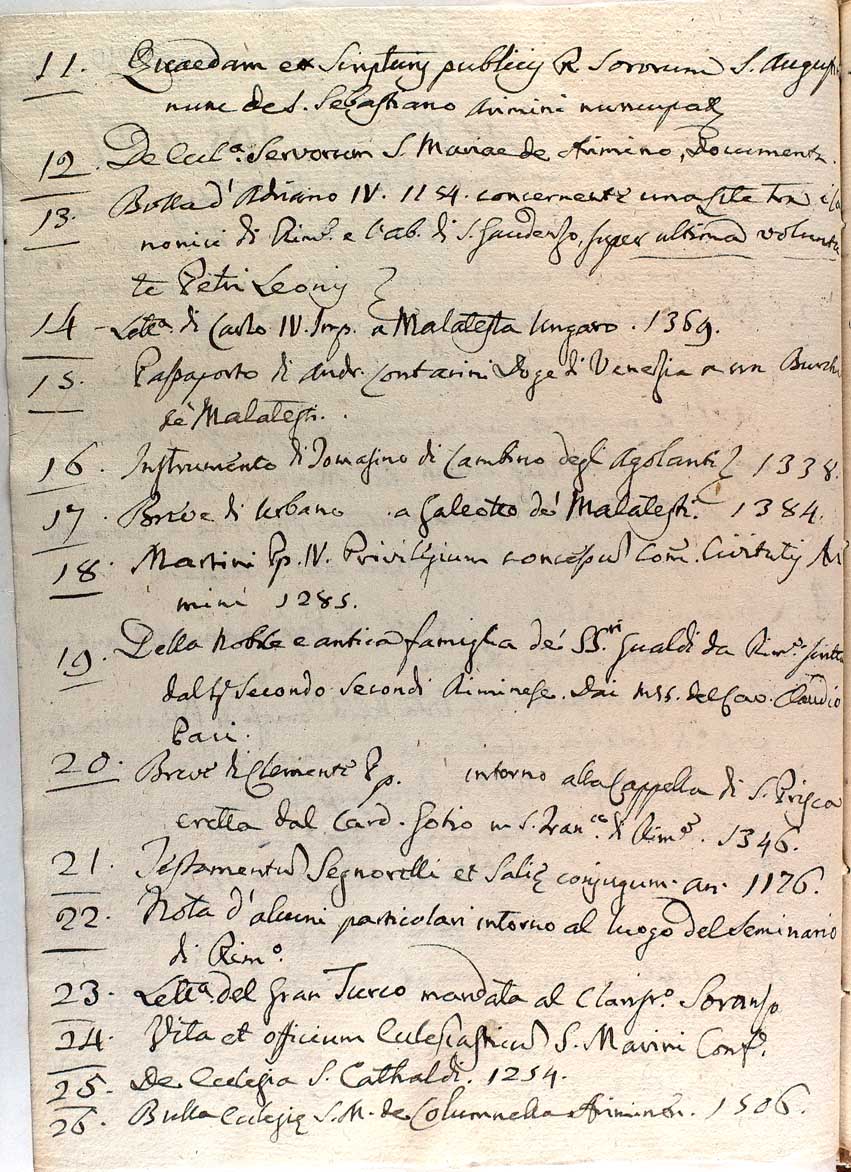 11. Quaedam ex Scripturis publicis R. Sororum S. Augusti
nunc de S. Sebastiano Arimini nuncupat
12. De Eccl.a Servorum S. Mariae de Arimino, Document.
13. Bolla d'Adriano IV. 1154. concernente una Lite tra i Ca
nonici di Rim.o e l'ab. di S. Gaudenzo, super ultima volunta
te Petri Leonis
14 - Lett.a di Carlo IV. Imp. a Malatesta Ungaro. 1369.
15. Passaporto di Andr. Contarini Doge di Venezia a un
de' Malatesti.
16. Instrumento di Tomasino di Cambino degl' Agolanti 1338.
17. Breve di Urbano a Galeotto de' Malatesti. 1384.
18. Martini Pp. IV. Privilegium concessum Com. Civitatis Ari
mini 1285.
19. Della Nobile e antica famiglia de' SS.ri Gualdi da Rim.o scritta
dal Sig. Secondo Secondi Riminese. Dai mss. del Cav. Claudio
Paci.
20. Breve di Clemente Pp. intorno alla Cappella di S. Prisca
eretta dal Card. Gotio in S. Fran.co di Rim.o. 1346.
21. Testamentum Segnorelli et Salię conjugum. an. 1176.
22. Nota d'alcuni particolari intorno al luogo del Seminario
di Rim.o.
23. Lett.a del Gran Turco mandata al Clariss.o Soranzo
24. Vita et officium Ecclesiasticum S. Marini Conf.
25. De Ecclesia S. Cathaldi. 1254.
26. Bulla Ecclesię S. M. de Columnella Arimineñ. 1506.